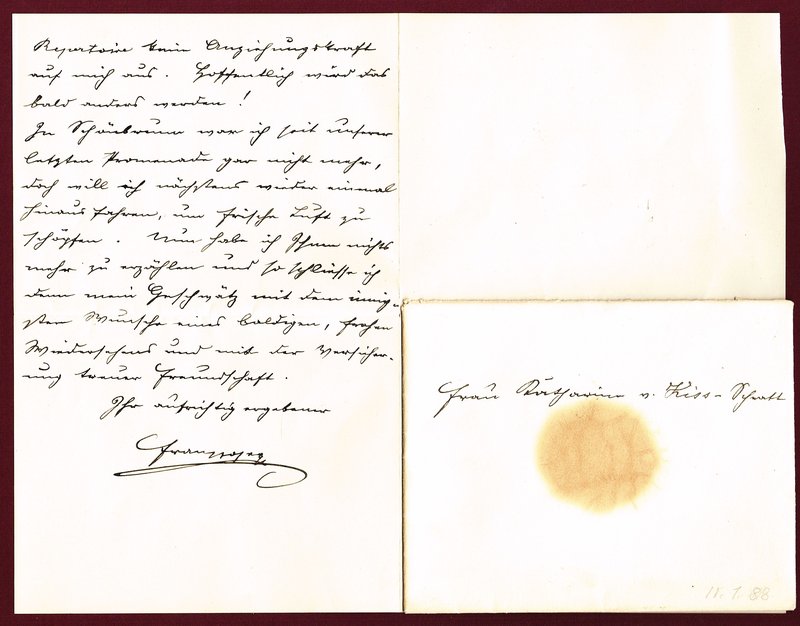 Repertoire kein Anziehungskraft
auf mich aus. Hoffentlich wird das
bald anders werden!
In Schönbrunn war ich seit unserer
letzten Promenade gar nicht mehr,
doch will ich nächstens wieder einmal
hinaus fahren, um frische Luft zu
schöpfen. Nun habe ich Ihnen nichts
mehr zu erzählen und so schliesse ich
denn mein Geschwätz mit dem innig-
sten Wunsche eines baldigen, frohen
Wiedersehens und mit der Versicher-
ung treuer Freundschaft.
Ihr aufrichtig ergebener
Franz Joseph
Frau Katharina v. Kiss-Schratt
11. 1. 88